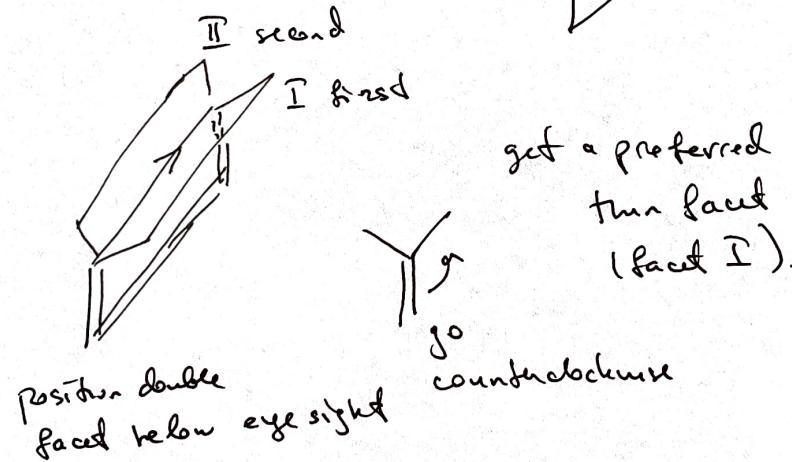 II second
I first
get a preferred
thin facet
(facet I).
go
counterclockwise
position double
facet below eye sight